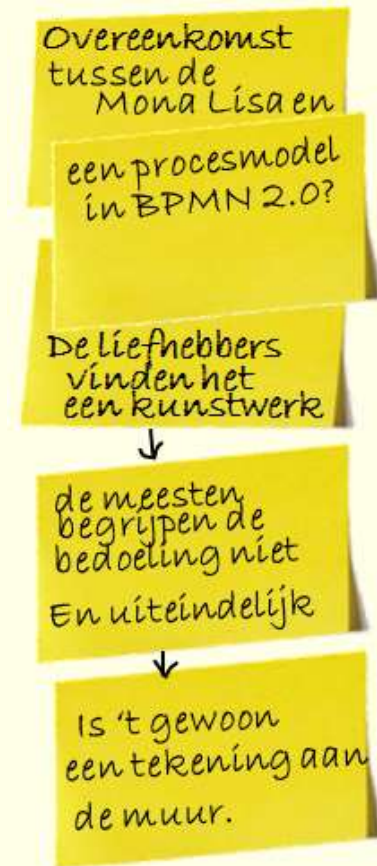 Overeenkomst
tussen de
Mona Lisa en
een procesmodel
in BPMN 2.0?
De liefhebbers
vinden het
een kunstwerk
de meesten
begrijpen de
bedoeling niet
En uiteindelijk
Is 't gewoon
een tekening aan
de muur.